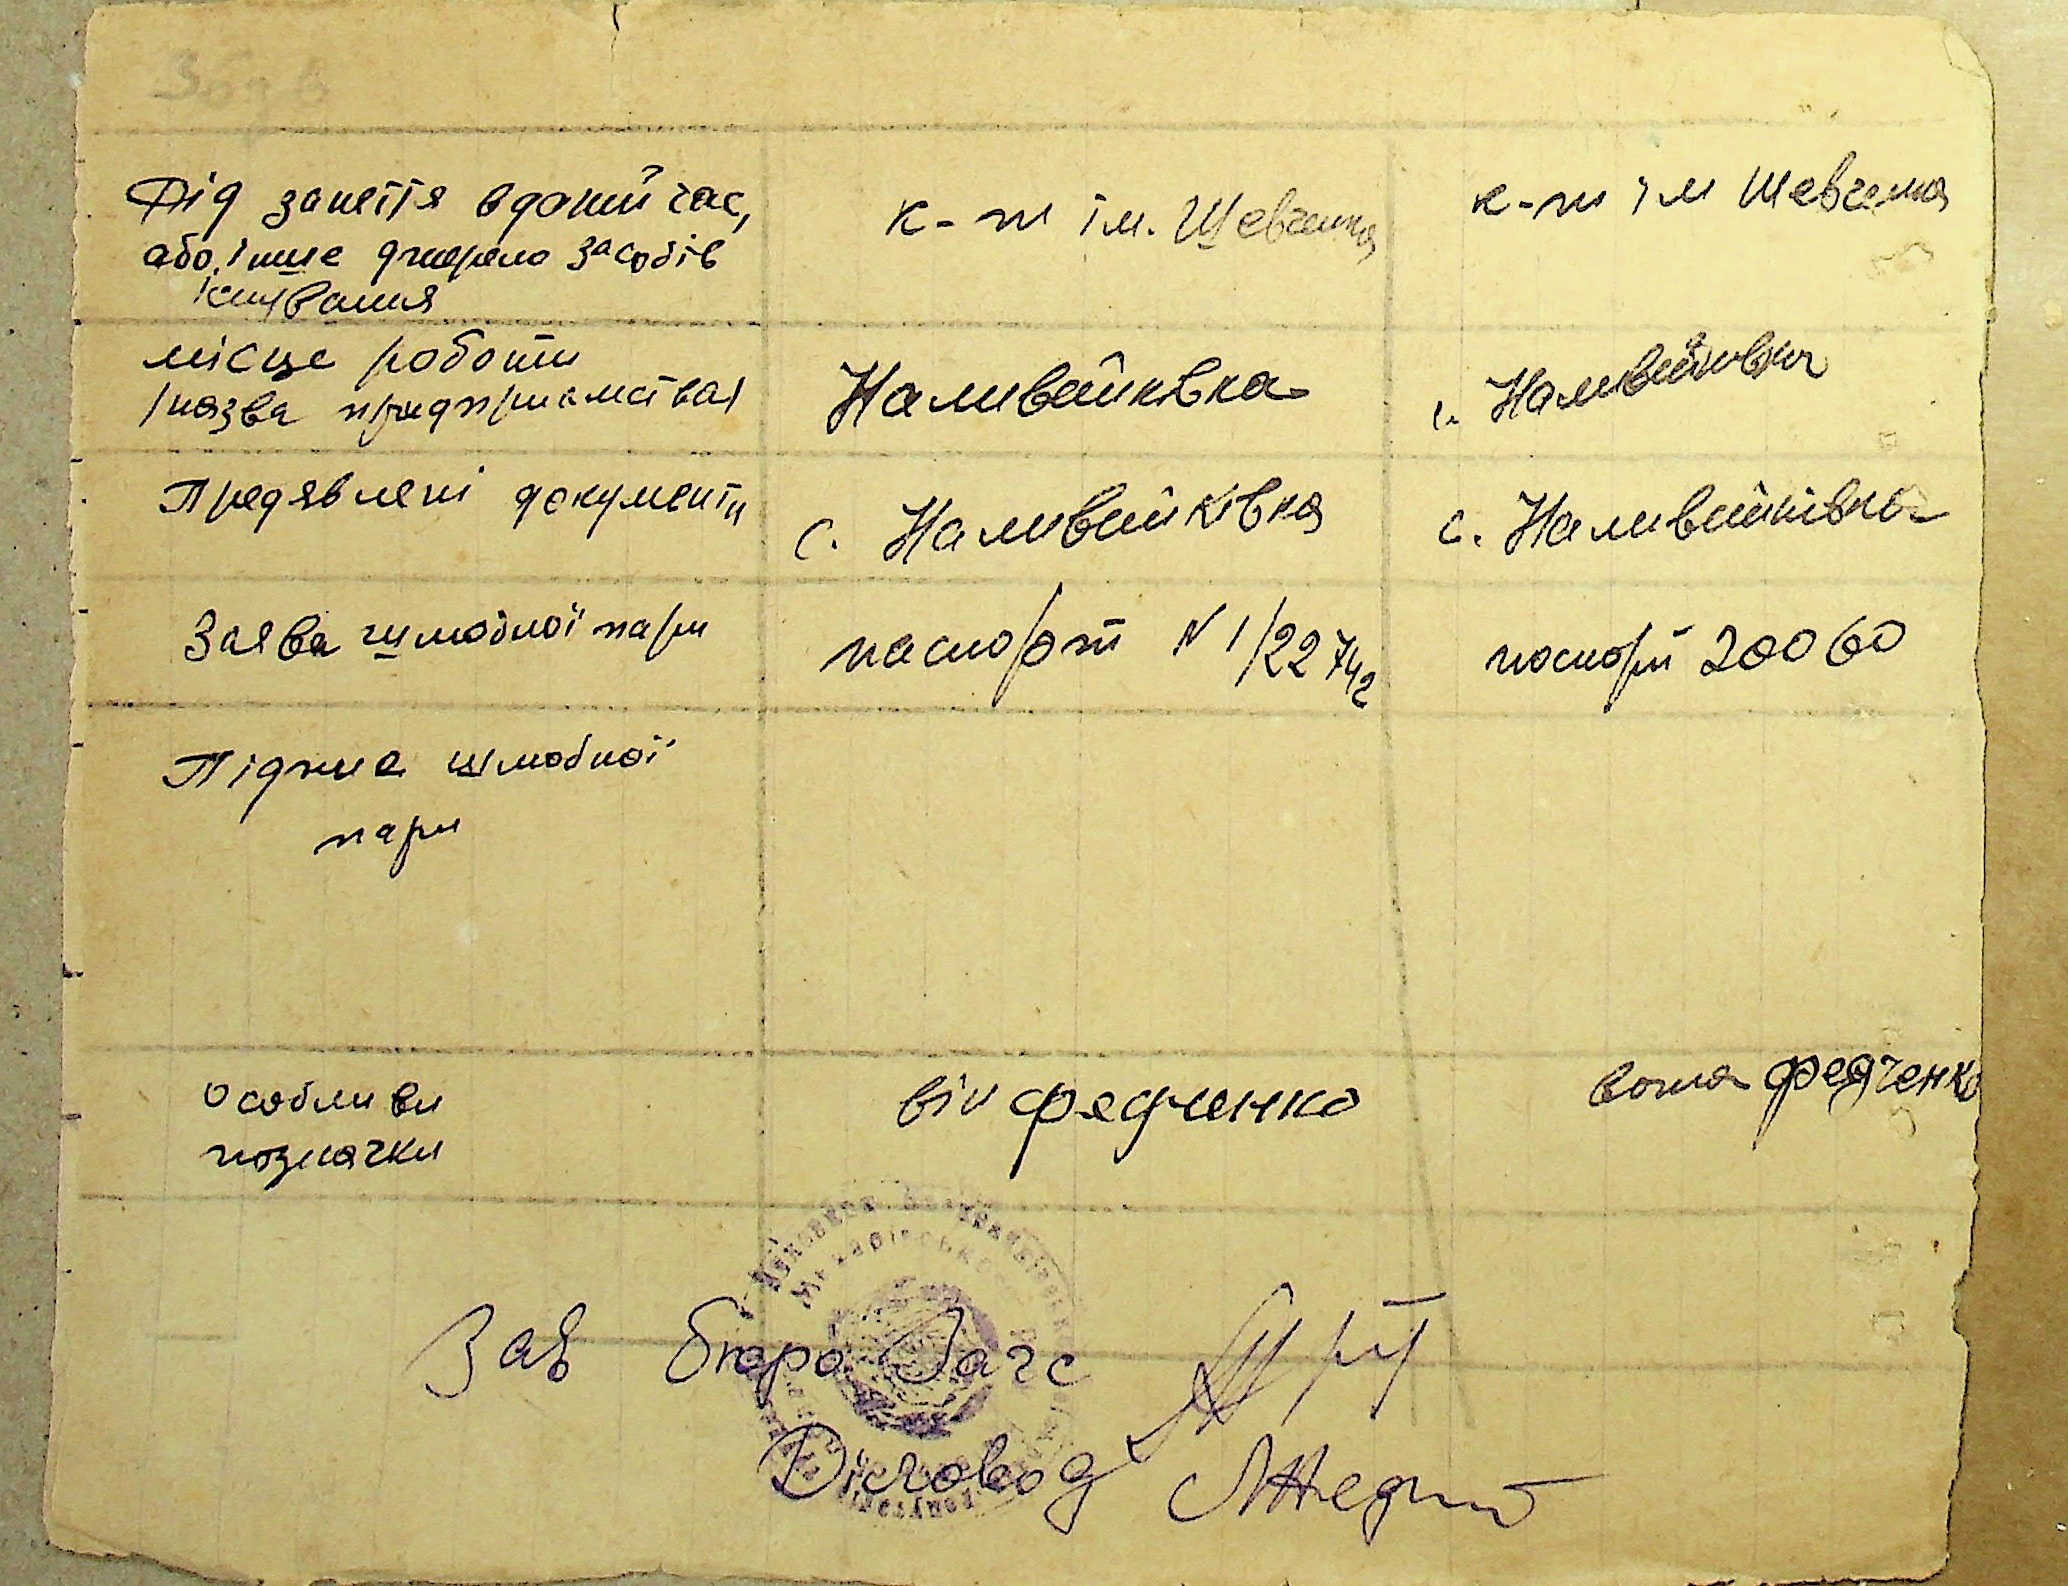 Рід заняття в даний час,
або інше джерело засобів
існування
к-т ім. Шевченка
к-т ім Шевченка
місце роботи
/назва придприємства/
Наливайківка
с. Наливайківка
Предявлені документи
с. Наливайківка
с. Наливайківка
Заява шлюбної пари
паспорт N 1/22742
паспорт 20060
Підпис шлюбної
пари
Особливи
позначки
він Федченко
вона Федченко
Зав бюро Загс
Діловод